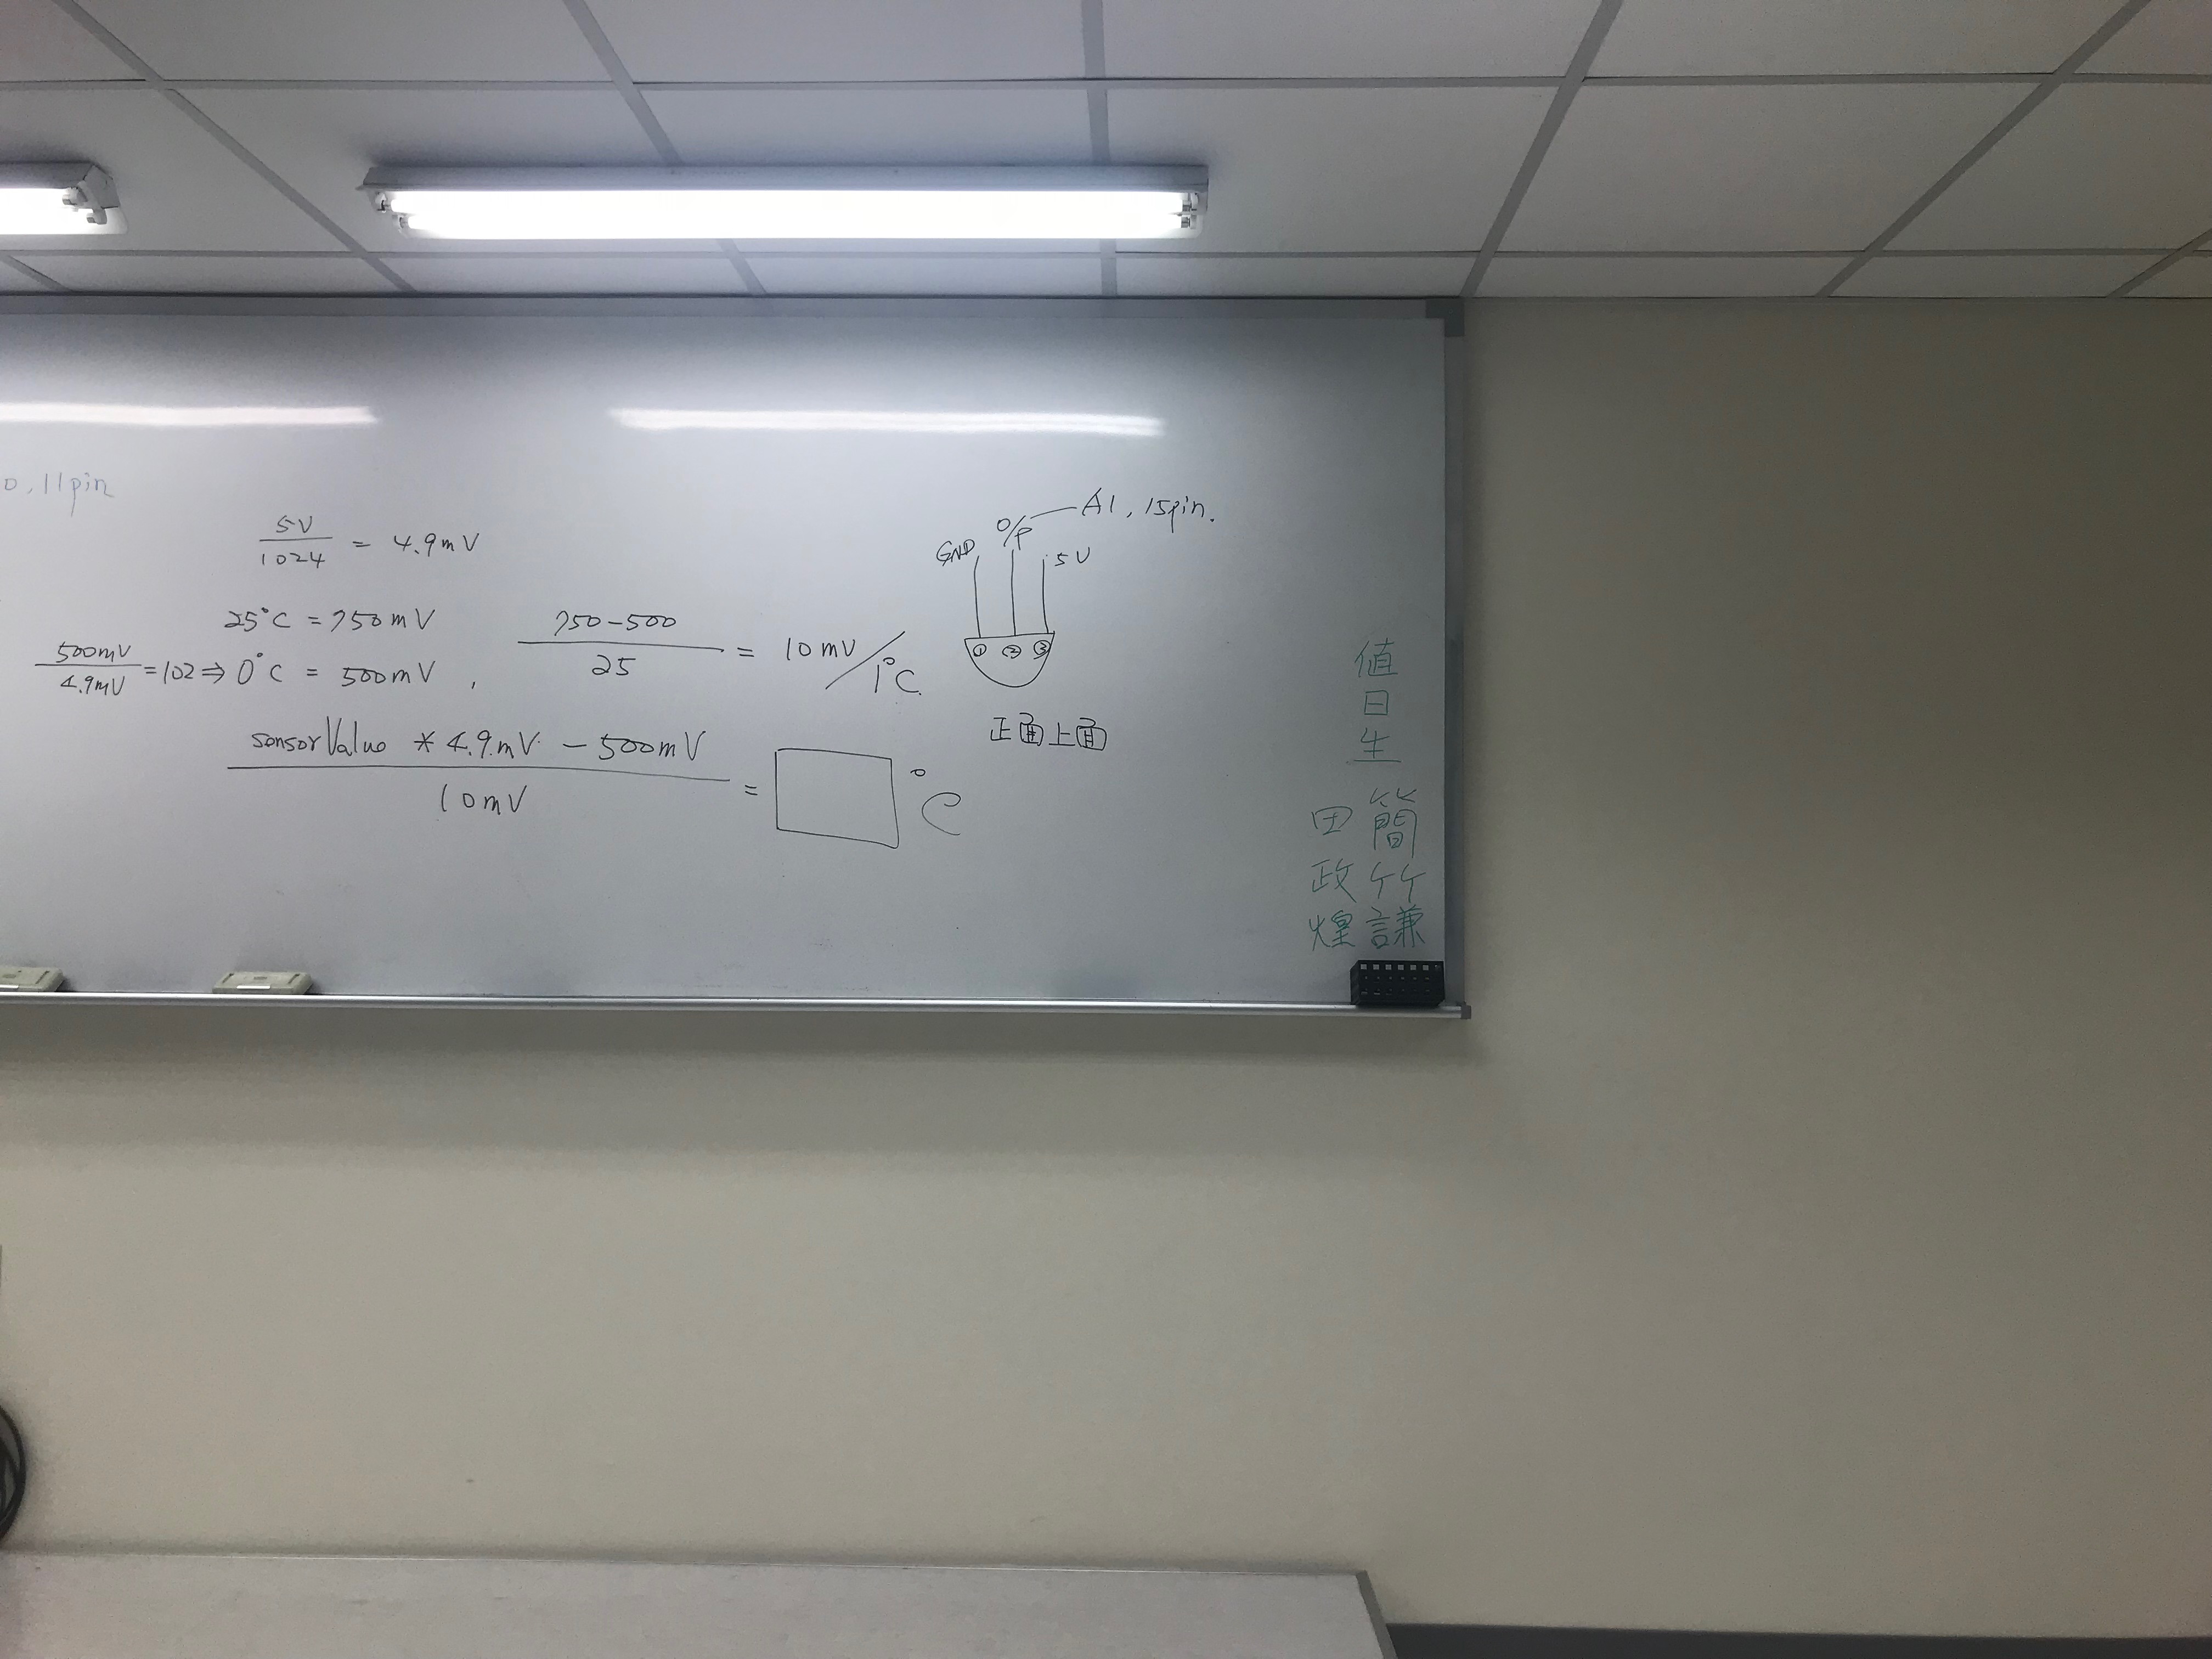 0, 11pin
5V/1024 = 4.9mV
25°C = 750mV
500mV/4.9mV = 102 ⇒ 0°C = 500mV ,
750-500/25 = 10mV/1°C
sensorValue * 4.9mV - 500mV/10mV = °C
O/P A1, 15pin.
GND 5V
① ② ③
正面上面
值日生
簡竹謙
田政煌